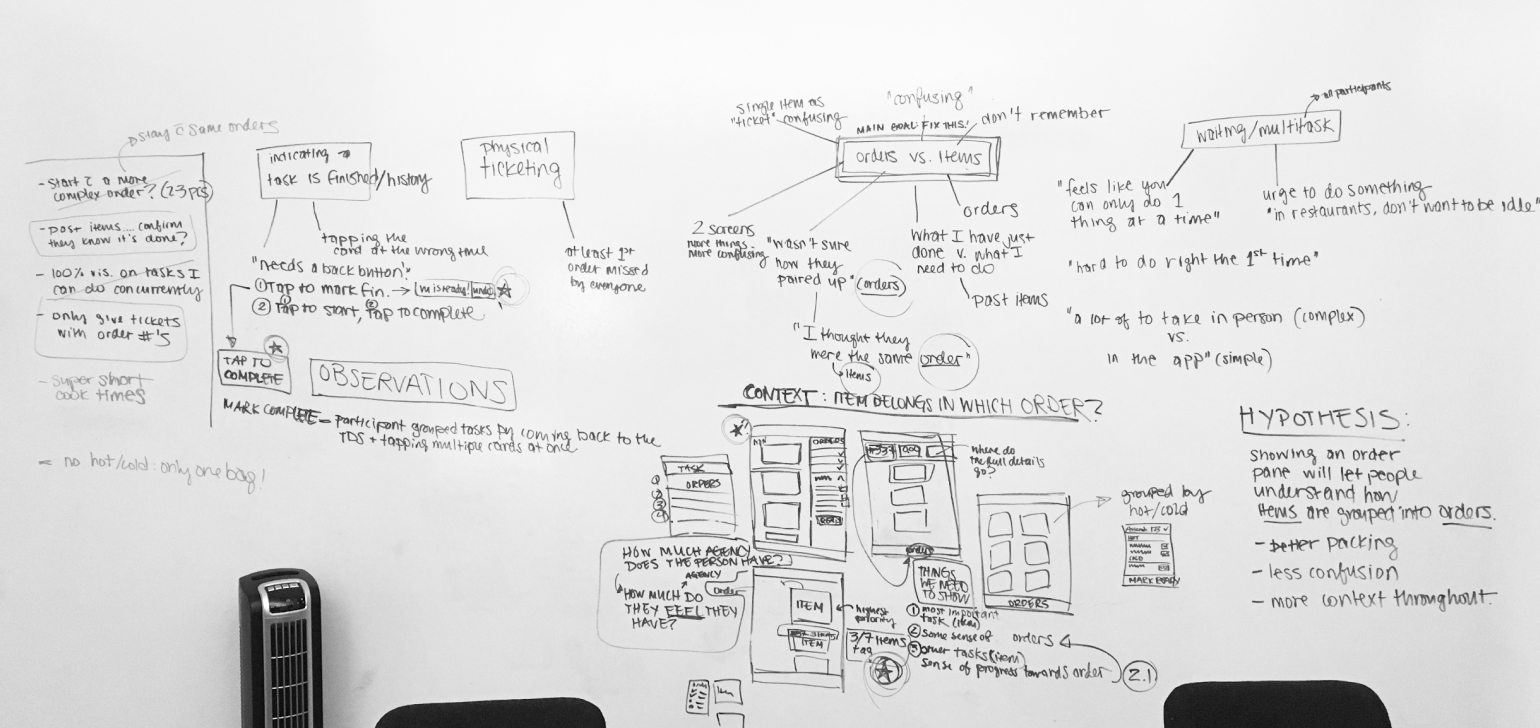 stay c̄ same orders
- start c̄ a more
complex order? (2-3 pcs)
- past items.... confirm
they know it's done?
- 100% vis. on tasks I
can do concurrently
- only give tickets
with order #'s
- super short
cook times
indicating →
task is finished/history
tapping the
card at the wrong time
"needs a back button"
① Tap to mark fin. →
is ready! undo
② Tap to start, tap to complete
TAP TO
COMPLETE
OBSERVATIONS
MARK COMPLETE - participant grouped tasks by coming back to the
TDS + tapping multiple cards at once
= no hot/cold: only one bag!
physical
ticketing
at least 1st
order missed
by everyone
single item as
"ticket" confusing
"confusing"
don't remember
MAIN GOAL: FIX THIS!
orders vs. items
2 screens
more things.
more confusing
"wasn't sure
how they
paired up" (orders)
"I thought they
were the same order"
items
orders
what I have just
done v. what I
need to do
past items
to all participants
waiting/multitask
"feels like you
can only do 1
thing at a time"
urge to do something
"in restaurants, don't want to be idle"
"hard to do right the 1st time"
"a lot of to take in person (complex)
vs.
in the app" (simple)
CONTEXT: ITEM BELONGS IN WHICH ORDER?
TASK
ORDERS
1
2
3
4
ORDERS
#337
where do
the full details
go?
orders
ORDERS
grouped by
hot/cold
HOT
COLD
MARK READY
HOW MUCH AGENCY
DOES THE PERSON HAVE?
AGENCY
HOW MUCH DO
THEY FEEL THEY
HAVE?
order
ITEM
ITEM
highest
priority
3/7 items
tag
THINGS
WE NEED
TO SHOW
① most important
task (item)
② some sense of orders
③ other tasks (item)
sense of progress towards order
2.1
HYPOTHESIS:
showing an order
pane will let people
understand how
items are grouped into orders.
- better packing
- less confusion
- more context throughout.